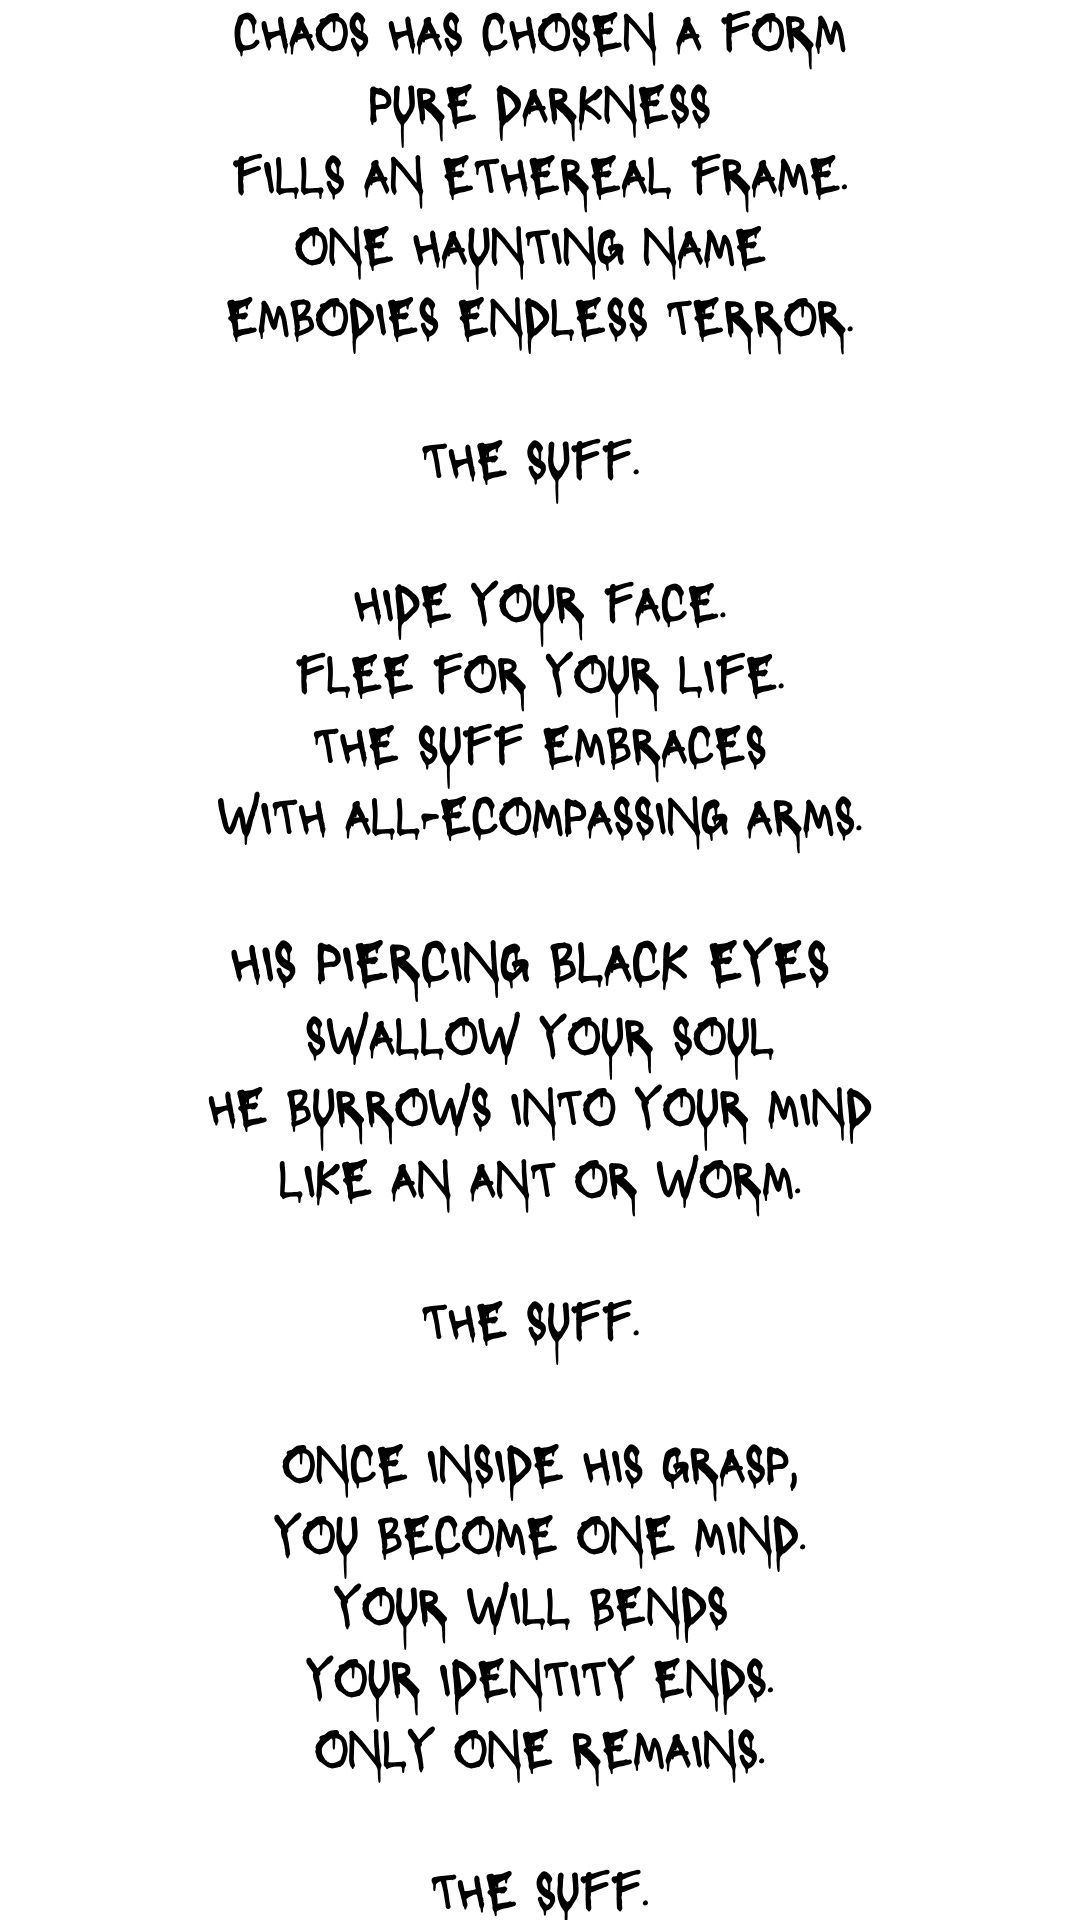 CHAOS HAS CHOSEN A FORM
PURE DARKNESS
FILLS AN ETHEREAL FRAME.
ONE HAUNTING NAME
EMBODIES ENDLESS TERROR.
THE SUFF.
HIDE YOUR FACE.
FLEE FOR YOUR LIFE.
THE SUFF EMBRACES
WITH ALL-ECOMPASSING ARMS.
HIS PIERCING BLACK EYES
SWALLOW YOUR SOUL
HE BURROWS INTO YOUR MIND
LIKE AN ANT OR WORM.
THE SUFF.
ONCE INSIDE HIS GRASP,
YOU BECOME ONE MIND.
YOUR WILL BENDS
YOUR IDENTITY ENDS.
ONLY ONE REMAINS.
THE SUFF.